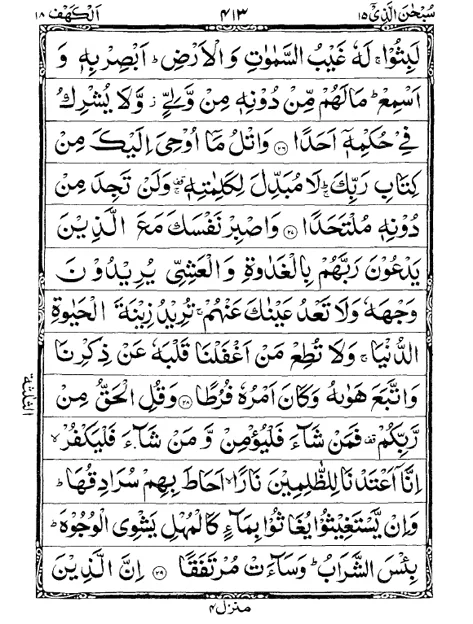 سُبْحٰنَ الَّذِیْۤ ١٥ ٤١٣ اَلْكَهْف ١٨
لَبِثُوْا ۚ لَهٗ غَیْبُ السَّمٰوٰتِ وَ الْاَرْضِ ؕ اَبْصِرْ بِهٖ وَ
اَسْمِعْ ؕ مَا لَهُمْ مِّنْ دُوْنِهٖ مِنْ وَّلِیٍّ ؗ وَّ لَا یُشْرِكُ
فِیْ حُكْمِهٖۤ اَحَدًا ۝۲۶ وَ اتْلُ مَاۤ اُوْحِیَ اِلَیْكَ مِنْ
كِتَابِ رَبِّكَ ؕ لَا مُبَدِّلَ لِكَلِمٰتِهٖ ۫ۚ وَ لَنْ تَجِدَ مِنْ
دُوْنِهٖ مُلْتَحَدًا ۝۲۷ وَ اصْبِرْ نَفْسَكَ مَعَ الَّذِیْنَ
یَدْعُوْنَ رَبَّهُمْ بِالْغَدٰوةِ وَ الْعَشِیِّ یُرِیْدُوْنَ
وَجْهَهٗ وَ لَا تَعْدُ عَیْنٰكَ عَنْهُمْ ۚ تُرِیْدُ زِیْنَةَ الْحَیٰوةِ
الدُّنْیَا ۚ وَ لَا تُطِعْ مَنْ اَغْفَلْنَا قَلْبَهٗ عَنْ ذِكْرِنَا
وَ اتَّبَعَ هَوٰىهُ وَ كَانَ اَمْرُهٗ فُرُطًا ۝۲۸ وَ قُلِ الْحَقُّ مِنْ
رَّبِّكُمْ ۫ فَمَنْ شَآءَ فَلْیُؤْمِنْ وَّ مَنْ شَآءَ فَلْیَكْفُرْ ۙ
اِنَّاۤ اَعْتَدْنَا لِلظّٰلِمِیْنَ نَارًا ۙ اَحَاطَ بِهِمْ سُرَادِقُهَا ؕ
وَ اِنْ یَّسْتَغِیْثُوْا یُغَاثُوْا بِمَآءٍ كَالْمُهْلِ یَشْوِی الْوُجُوْهَ ؕ
بِئْسَ الشَّرَابُ ؕ وَ سَآءَتْ مُرْتَفَقًا ۝۲۹ اِنَّ الَّذِیْنَ
الثلثة
منزل ٤